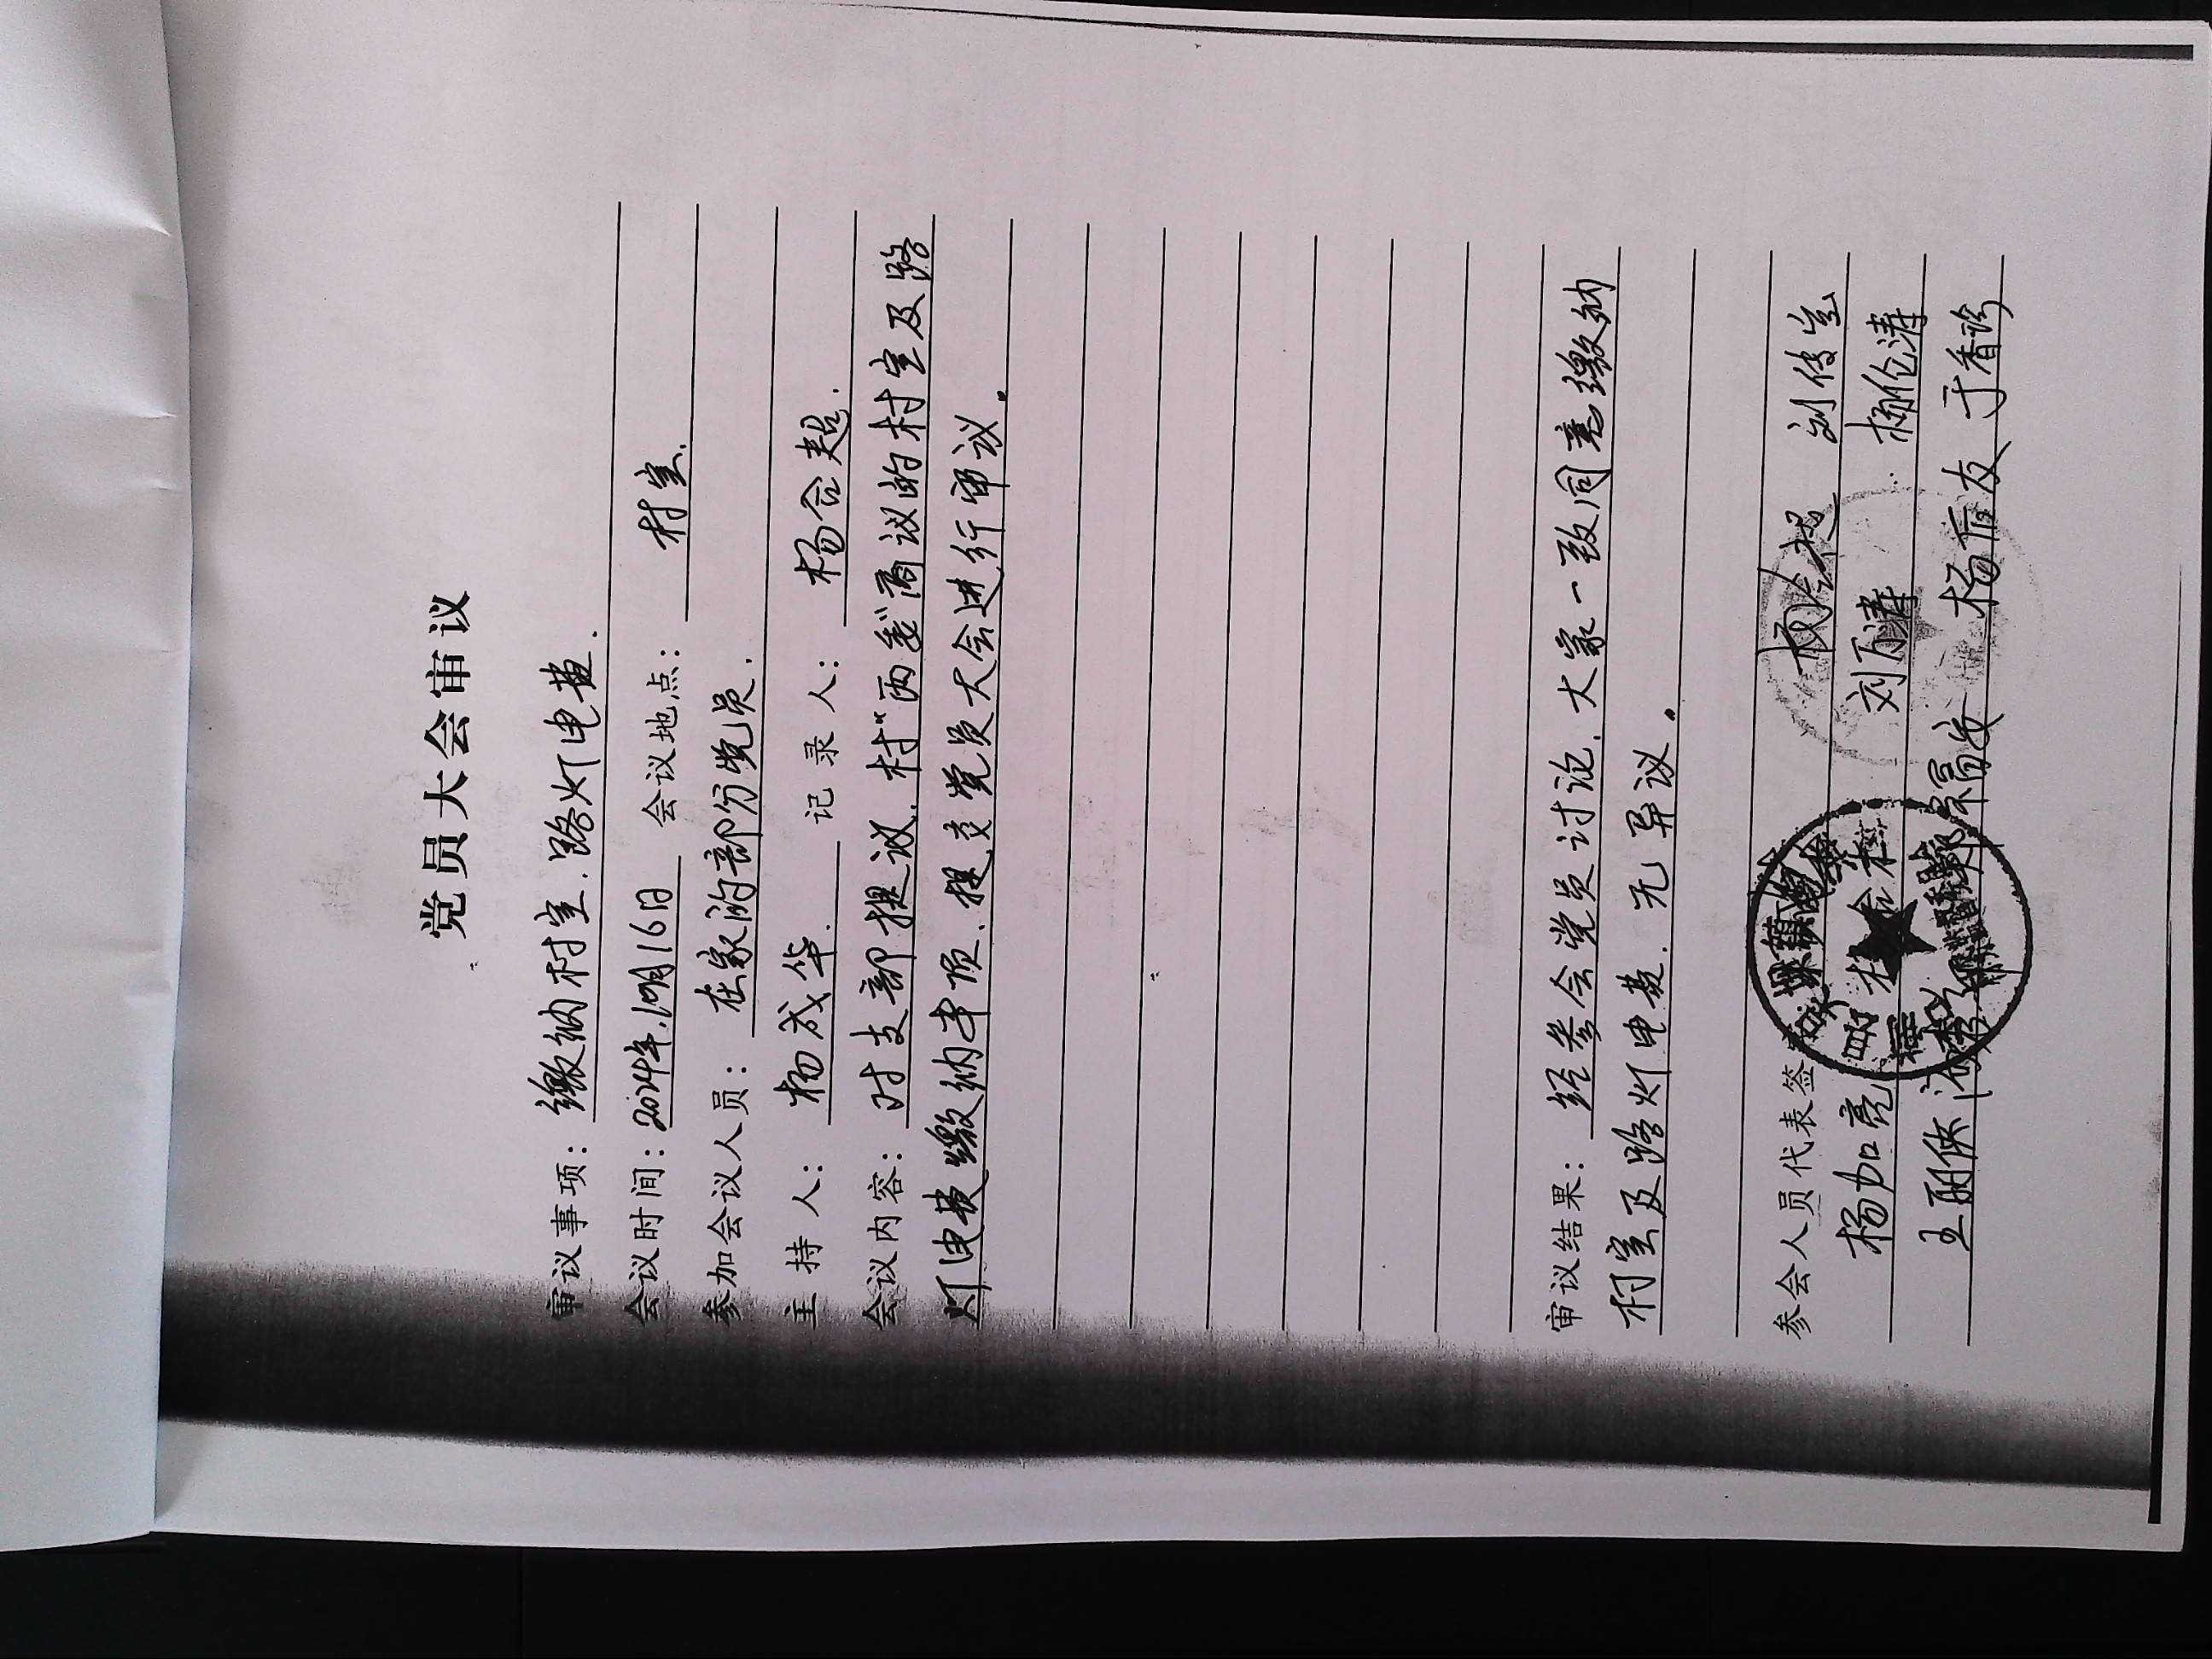 党员大会审议
审议事项：缴纳村室、路灯电费.
会议时间：2024年10月16日 会议地点：村室.
参加会议人员：在家的部份党员.
主 持 人：杨成华. 记 录 人：杨合超.
会议内容：对支部提议、村“两委”商议的村室及路
灯电费缴纳事项、提交党员大会进行审议.
审议结果：经参会党员讨论、大家一致同意缴纳
村室及路灯电费.无异议.
参会人员代表签 杨合超 刘传宝
杨加亮 刘万涛 杨伦涛
杨后友 于香玲